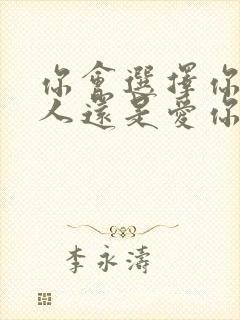 你會選擇你
人還是愛你
李永濤